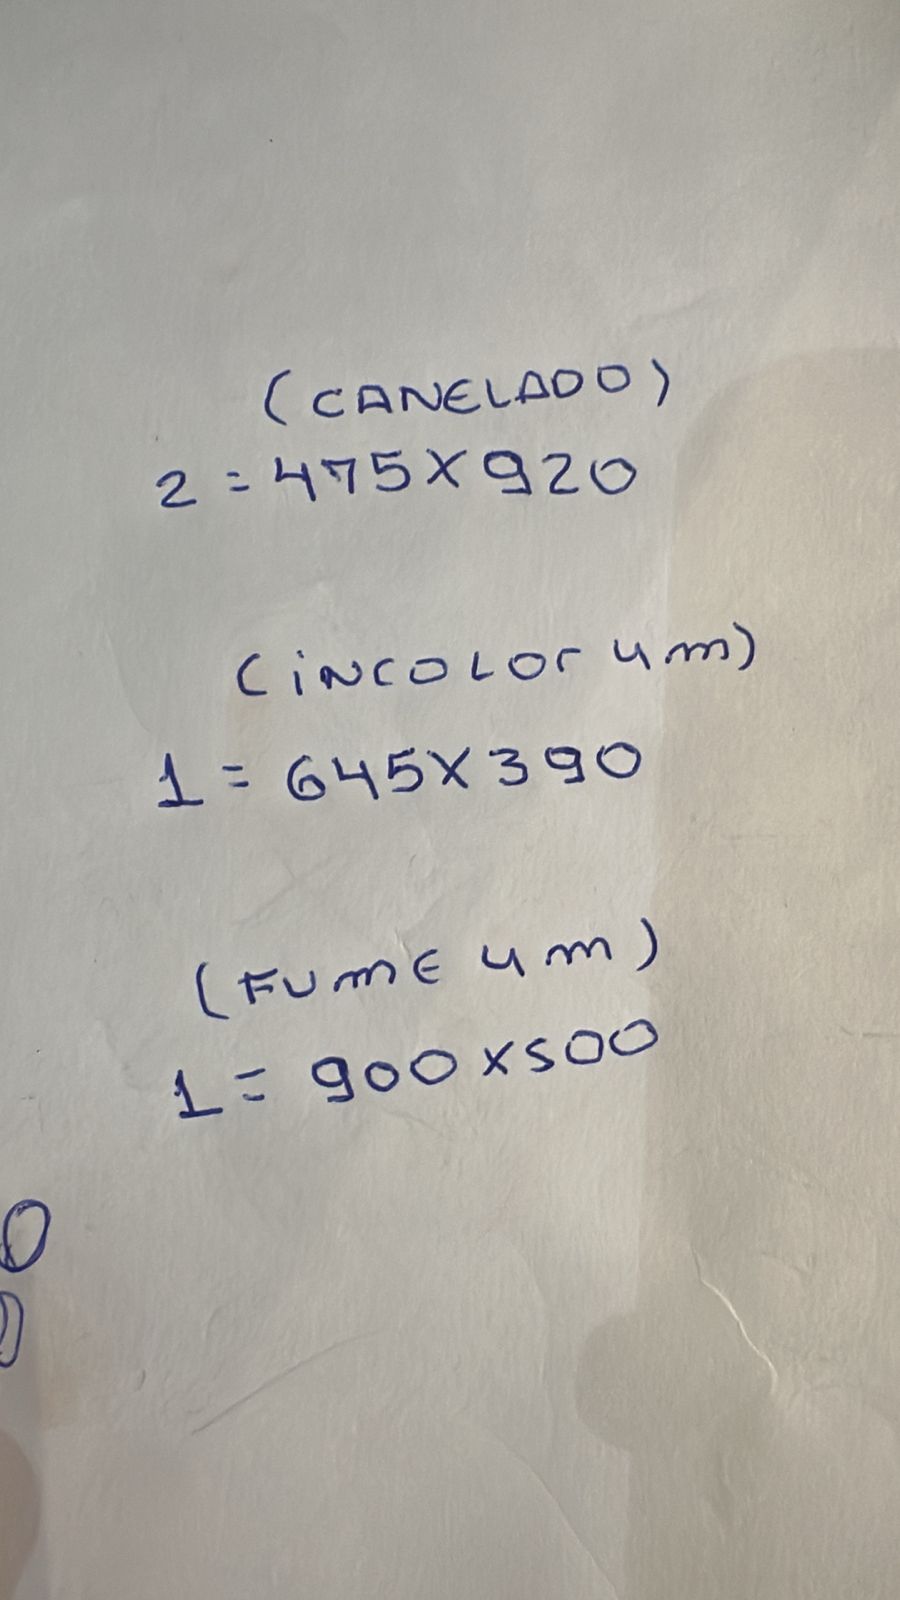 (CANELADO)
2 = 475 X 920
(iNCOLOr 4m)
1 = 645 X 390
(FUmE 4m)
1 = 900 x 500
0